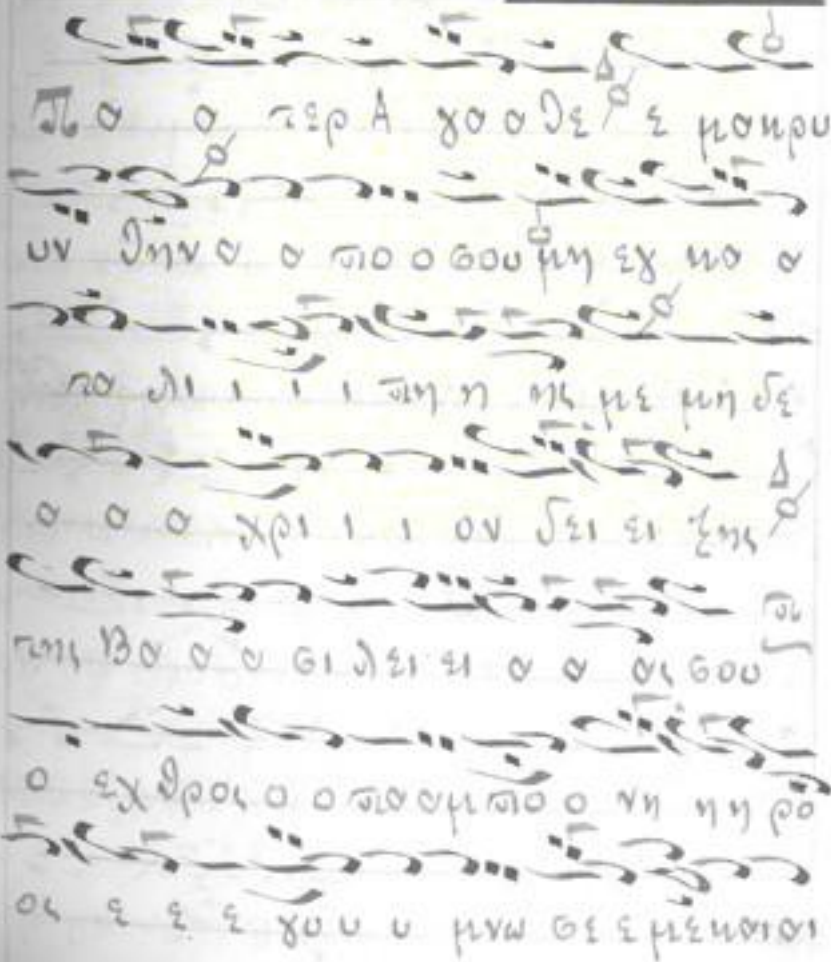 Πα α τερ Α γα α θε ε μακρυ
υν θην α α πο ο σου μη εγ κα α
τα λι ι ι ι πη η ης με μη δε
α α α χρι ι ι ον δει ει ξης
της Βα α α σι λει ει α α ας σου
ο εχ θρος ο ο πα αμ πο ο νη η η ρο
ος ε ε ε γυ υ υ μνω σε ε με και αι